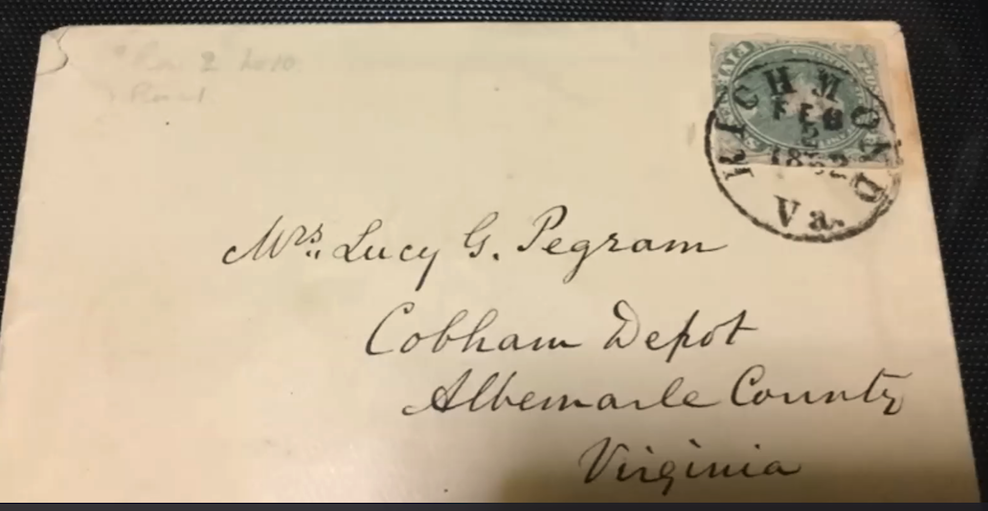 RICHMOND
FEB
2
1862
Va.
Mrs. Lucy G. Pegram
Cobham Depot
Albemarle County
Virginia